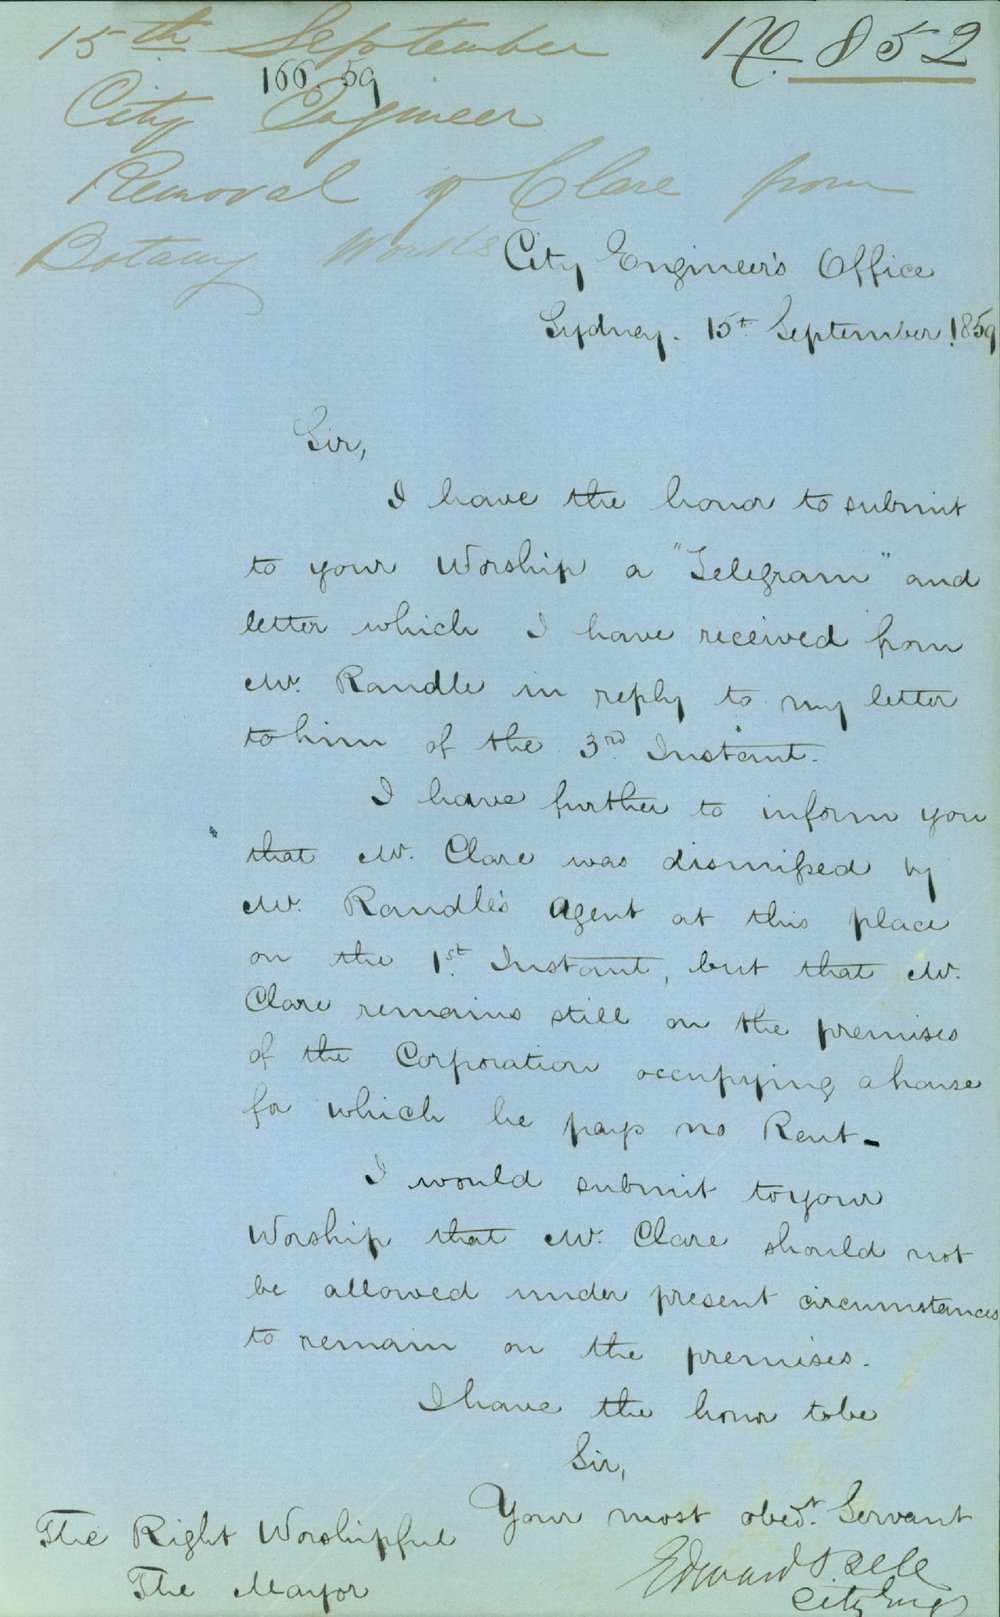 15th September
No. 852
166. 59
City Engineer
Removal of Clare from
Botany Works
City Engineer's Office
Sydney. 15th September. 1859
Sir,
I have the honor to submit
to your Worship a "Telegram" and
letter which I have received from
Mr. Randle in reply to my letter
to him of the 3rd Instant.
I have further to inform you
that Mr. Clare was dismissed by
Mr. Randle's Agent at this place
on the 1st Instant, but that Mr.
Clare remains still on the premises
of the Corporation occupying a house
for which he pays no Rent-
I would submit to your
Worship that Mr. Clare should not
be allowed under present circumstances
to remain on the premises.
I have the honor to be
Sir,
Your most obedt. Servant
Edward Bell
City Engr
The Right Worshipful
The Mayor